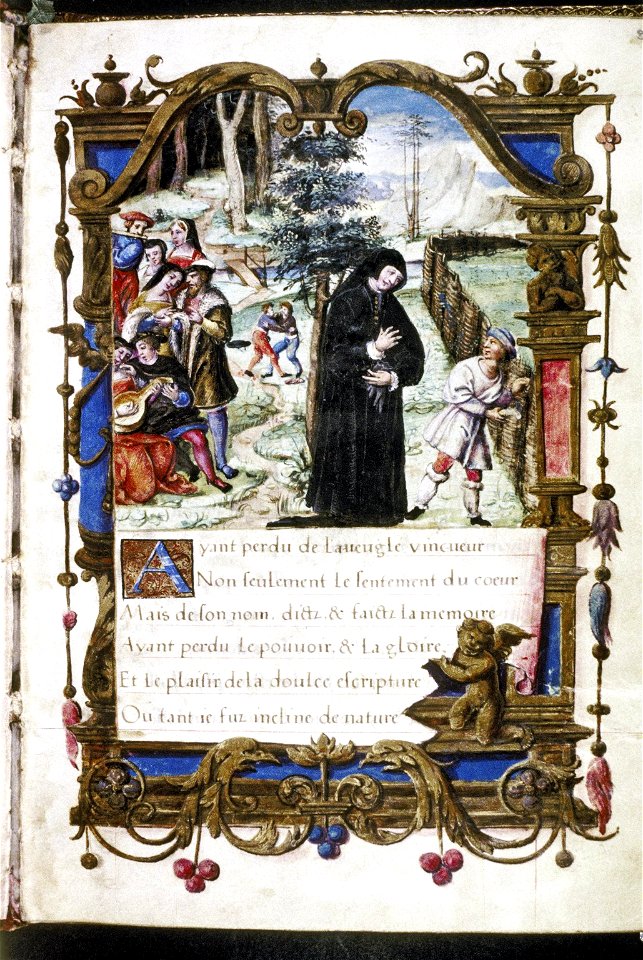 Ayant perdu de laueugle vincueur
Non seulement le sentement du coeur
Mais de son nom, dictz, & faictz la memoire
Ayant perdu le pouuoir, & la gloire,
Et le plaisir de la doulce escripture
Ou tant ie fuz incline de nature